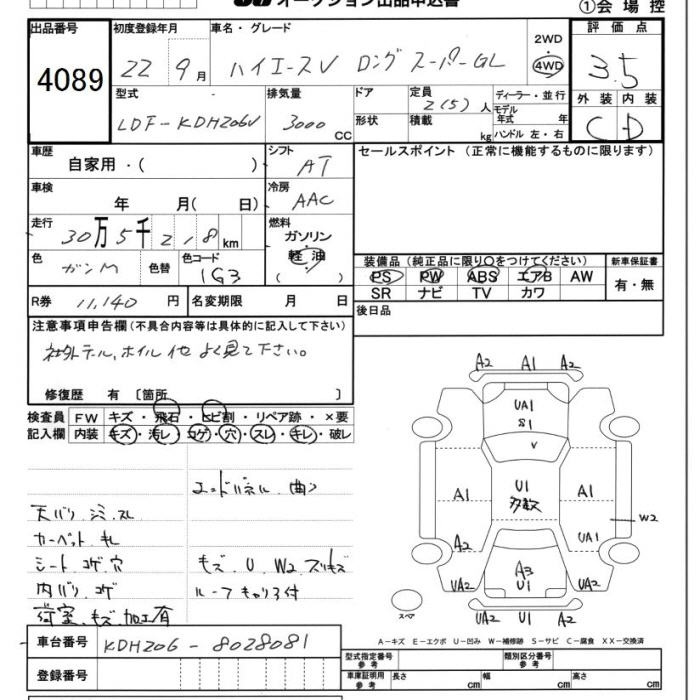 オークション出品申込書
①会場控
出品番号 4089
初度登録年月 22 9月
車名・グレード ハイエースV ロング スーパーGL
2WD 4WD
評価点 3.5
型式 LDF-KDH206V
排気量 3000 CC
ドア 形状
定員 2(5)人
積載 kg
ディーラー・並行
モデル年式 年
ハンドル 左・右
外装 内装
C D
車歴 自家用・( )
シフト AT
セールスポイント (正常に機能するものに限ります)
車検 年 月( 日)
冷房 AAC
走行 30万5千218km
燃料 ガソリン 軽油 ( )
色 ガンM 色替
色コード 1G3
装備品 (純正品に限り○をつけてください)
新車保証書
PS PW ABS エアB AW
有・無
SR ナビ TV カワ
R券 11,140円
名変期限 月 日
後日品
注意事項申告欄 (不具合内容等は具体的に記入して下さい)
社外テール、ホイル 他 よく見て下さい。
修復歴 有 〔箇所 〕
検査員 FW キズ・飛石・ヒビ割・リペア跡・×要
記入欄 内装 キズ・汚レ・コゲ・穴・スレ・キレ・破レ
エンドパネル 曲り
天バリ シミ スレ
カーペット キレ
シート コゲ 穴
キズ U W2 スリキズ
内バリ コゲ
ルーフキャリア付
荷室、キズ 加工有
A2 A1 A2
UA1
S1
V
A1
U1
多数
A1
W2
A2
UA1
UA2
A3
U1
UA2
UA2 U1 A2
スペア
A-キズ E-エクボ U-凹み W-補修跡 S-サビ C-腐食 XX-交換済
車台番号 KDH206-8028081
登録番号
型式指定番号 参考
類別区分番号 参考
車庫証明用 参考 長さ cm 幅 cm 高さ cm